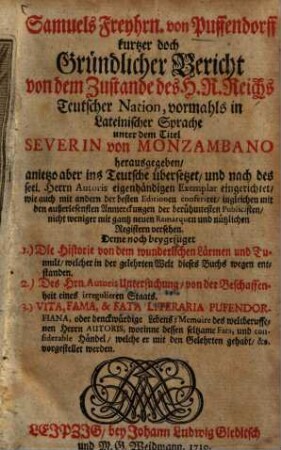 Samuels Freyhrn. von Puffendorff
kurtzer doch
Gründlicher Bericht
von dem Zustande des H. R. Reichs
Teutscher Nation, vormahls in
Lateinischer Sprache
unter dem Titel
SEVERIN von MONZAMBANO
herausgegeben/
anietzo aber ins Teutsche übersetzet/ und nach des
seel. Herrn Autoris eigenhändigen Exemplar eingerichtet/
wie auch mit andern der besten Editionen conferiret/ ingleichen mit
den außerlesensten Anmerckungen der berühmtesten Publicisten/
nicht weniger mit gantz neuen Remarquen und nützlichen
Registern versehen.
Deme noch beygefüget
1.) Die Historie von dem wunderlichen Lärmen und Tu-
mult/ welcher in der gelehrten Welt dieses Buchs wegen ent-
standen.
2.) Des Hrn. Autoris Untersuchung/ von der Beschaffen-
heit eines irregulieren Staats.
3.) VITA, FAMA, & FATA LITERARIA PUFENDOR-
FIANA, oder denckwürdige Lebens-Memoire des weltberuffe-
nen Herrn AUTORIS, worinne dessen seltzame Fata, und con-
siderable Händel/ welche er mit den Gelehrten gehabt/ &c.
vorgestellet werden.
LEIPZIG/ bey Johann Ludwig Gleditsch
und M. G. Weidmann.